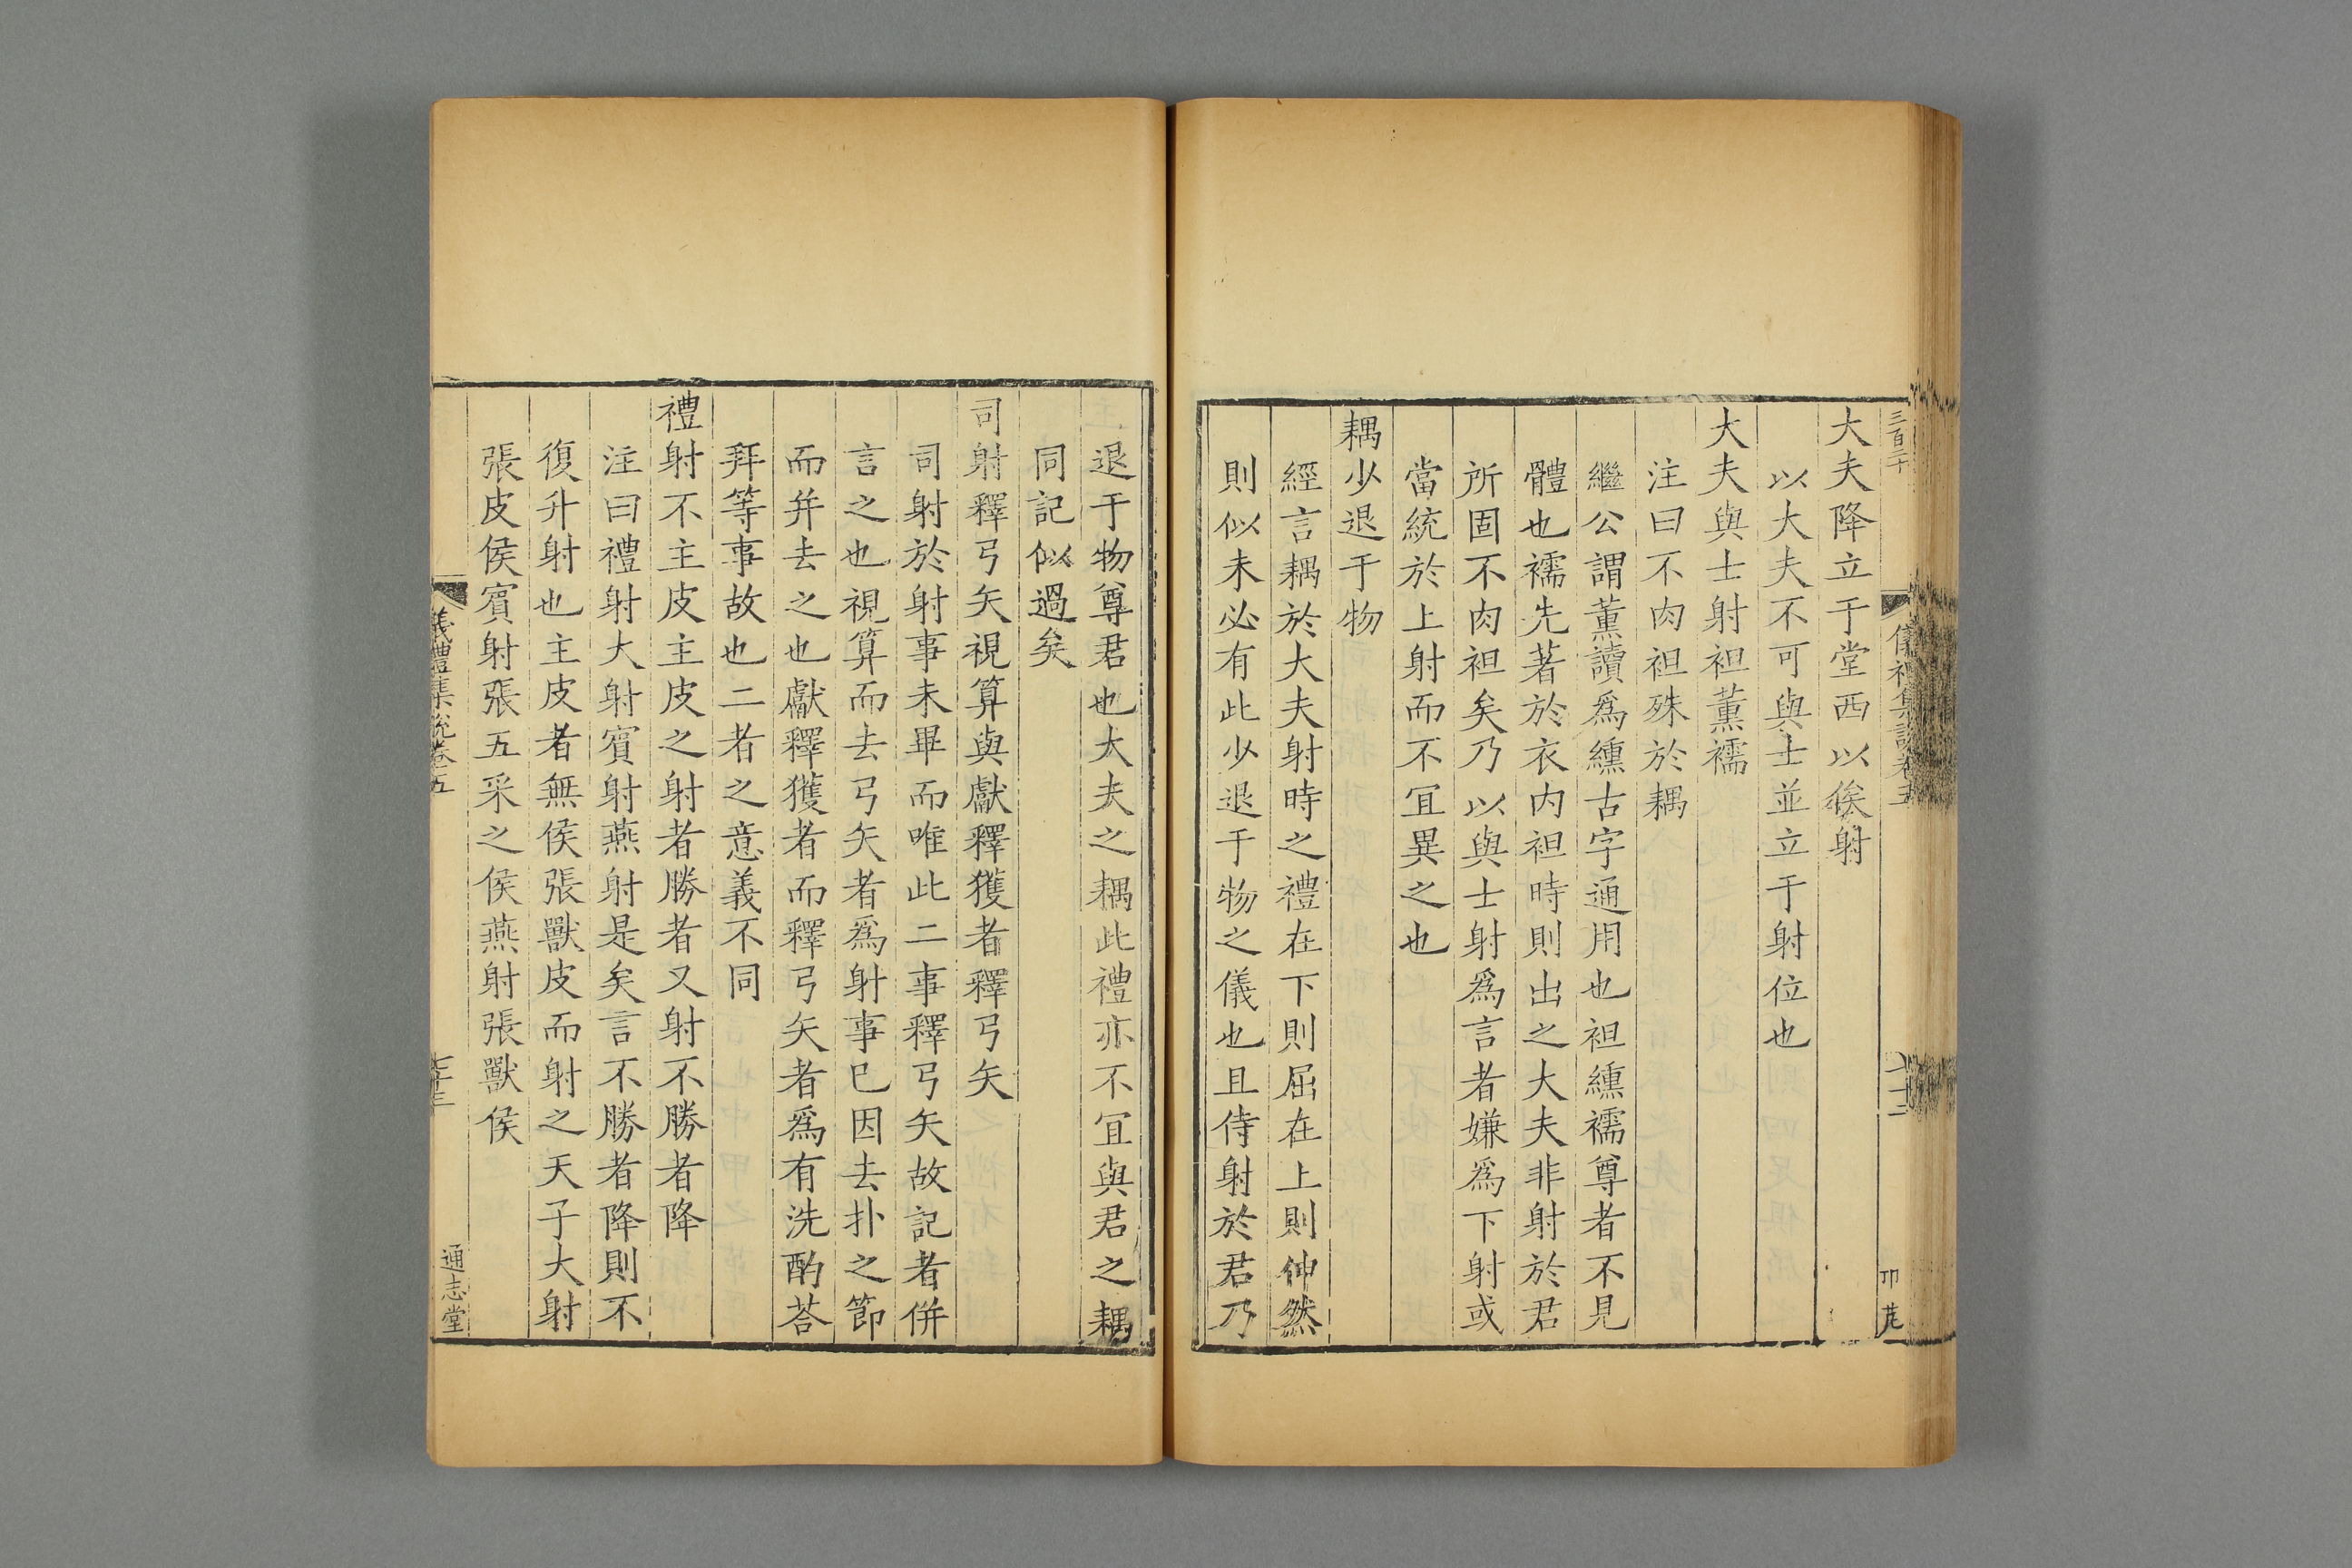 三百三十
大夫降立于堂西以俟射
以大夫不可與士並立于射位也
大夫與士射袒薰襦
注曰不肉袒殊於耦
繼公謂薰讀爲纁古字通用也袒纁襦尊者不見
體也襦先著於衣内袒時則出之大夫非射於君
所固不肉袒矣乃以與士射爲言者嫌爲下射或
當統於上射而不冝異之也
耦少退于物
經言耦於大夫射時之禮在下則屈在上則伸然
則似未必有此少退于物之儀也且侍射於君乃
退于物尊君也大夫之耦此禮亦不冝與君之耦
同記似過矣
司射釋弓矢視算與獻釋獲者釋弓矢
司射於射事未畢而唯此二事釋弓矢故記者併
言之也視算而去弓矢者爲射事已因去扑之節
而并去之也獻釋獲者而釋弓矢者爲有洗酌荅
拜等事故也二者之意義不同
禮射不主皮主皮之射者勝者又射不勝者降
注曰禮射大射賓射燕射是矣言不勝者降則不
復升射也主皮者無侯張獸皮而射之天子大射
張皮侯賓射張五采之侯燕射張獸侯
儀禮集說卷五
七十三
通志堂